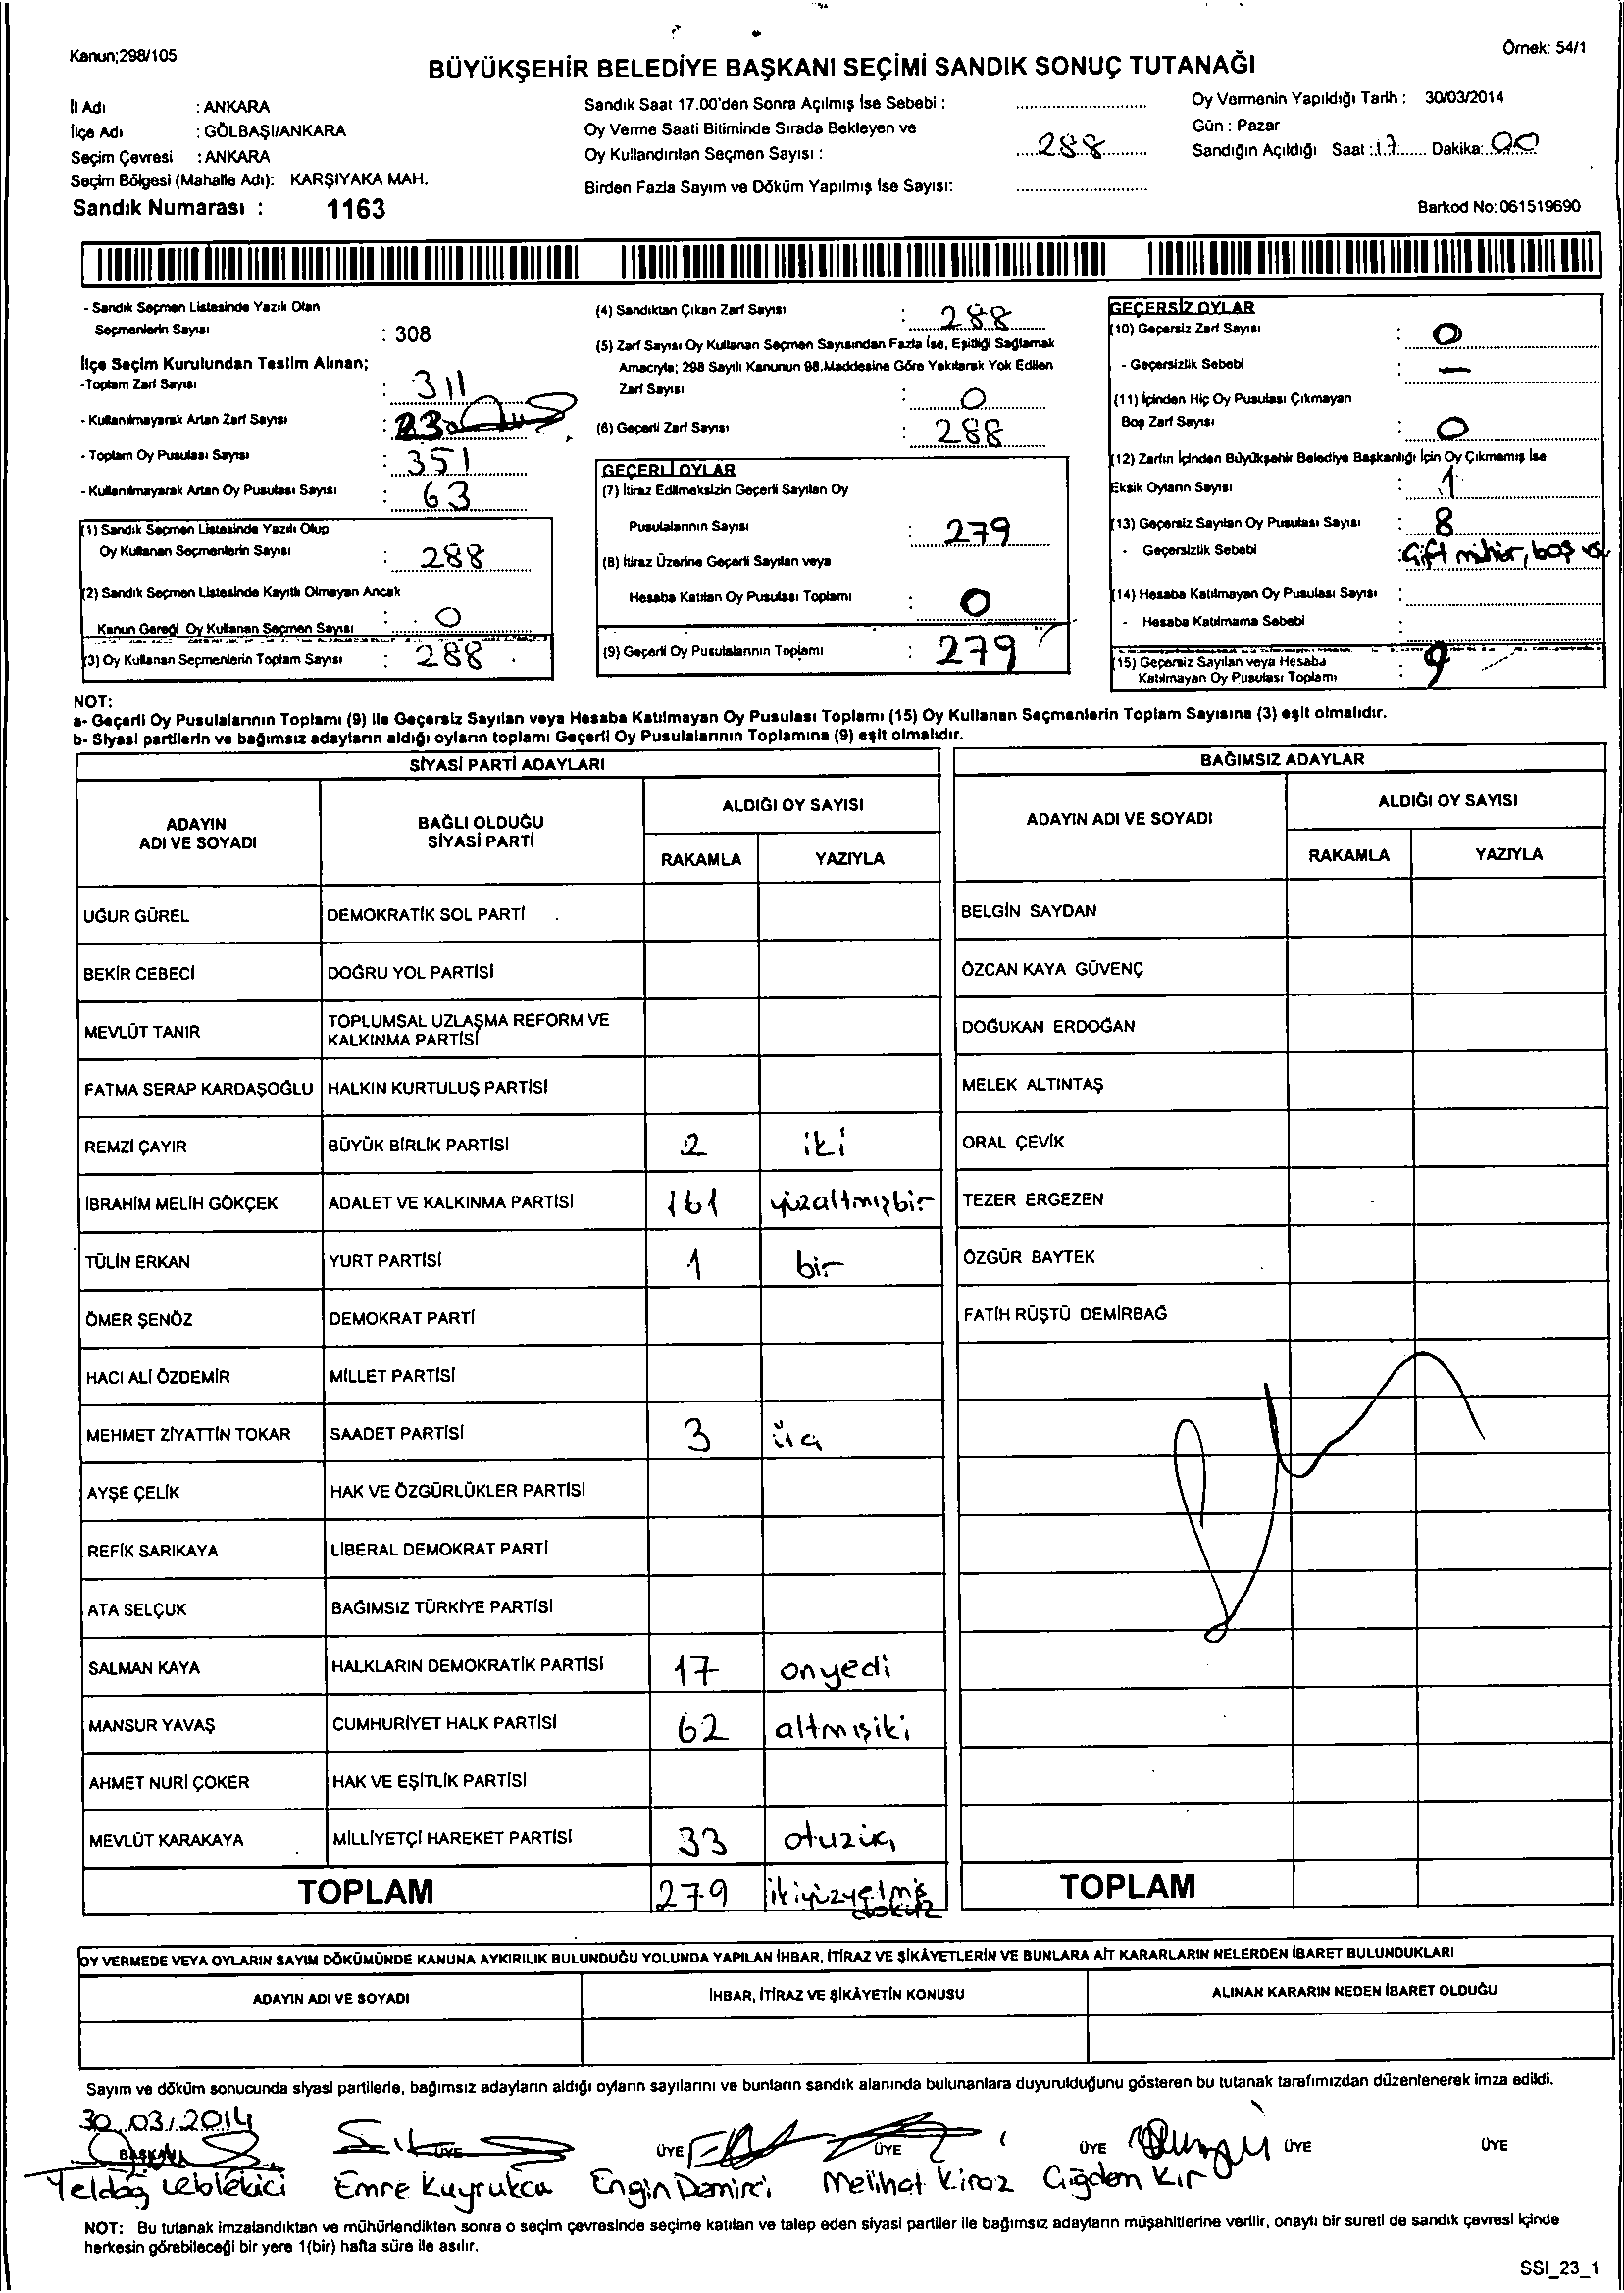 Kanun;298/105
Örnek: 54/1
BÜYÜKŞEHİR BELEDİYE BAŞKANI SEÇİMİ SANDIK SONUÇ TUTANAĞI
İl Adı : ANKARA
İlçe Adı : GÖLBAŞI/ANKARA
Seçim Çevresi : ANKARA
Seçim Bölgesi (Mahalle Adı): KARŞIYAKA MAH.
Sandık Numarası : 1163
Sandık Saat 17.00'den Sonra Açılmış İse Sebebi :
Oy Verme Saati Bitiminde Sırada Bekleyen ve
Oy Kullandırılan Seçmen Sayısı : 288
Birden Fazla Sayım ve Döküm Yapılmış İse Sayısı:
Oy Vermenin Yapıldığı Tarih : 30/03/2014
Gün : Pazar
Sandığın Açıldığı Saat : 17 Dakika: 00
Barkod No: 061519690
- Sandık Seçmen Listesinde Yazılı Olan
Seçmenlerin Sayısı : 308
İlçe Seçim Kurulundan Teslim Alınan;
-Toplam Zarf Sayısı : 311
- Kullanılmayarak Artan Zarf Sayısı : 23
- Toplam Oy Pusulası Sayısı : 351
- Kullanılmayarak Artan Oy Pusulası Sayısı : 63
(1) Sandık Seçmen Listesinde Yazılı Olup
Oy Kullanan Seçmenlerin Sayısı : 288
(2) Sandık Seçmen Listesinde Kayıtlı Olmayan Ancak
Kanun Gereği Oy Kullanan Seçmen Sayısı : 0
(3) Oy Kullanan Seçmenlerin Toplam Sayısı : 288
(4) Sandıktan Çıkan Zarf Sayısı : 288
(5) Zarf Sayısı Oy Kullanan Seçmen Sayısından Fazla İse, Eşitliği Sağlamak
Amacıyla; 298 Sayılı Kanunun 98.Maddesine Göre Yakılarak Yok Edilen
Zarf Sayısı : 0
(6) Geçerli Zarf Sayısı : 288
GEÇERLİ OYLAR
(7) İtiraz Edilmeksizin Geçerli Sayılan Oy
Pusulalarının Sayısı : 279
(8) İtiraz Üzerine Geçerli Sayılan veya
Hesaba Katılan Oy Pusulası Toplamı : 0
(9) Geçerli Oy Pusulalarının Toplamı : 279
GEÇERSİZ OYLAR
(10) Geçersiz Zarf Sayısı : 0
- Geçersizlik Sebebi : —
(11) İçinden Hiç Oy Pusulası Çıkmayan
Boş Zarf Sayısı : 0
(12) Zarfın İçinden Büyükşehir Belediye Başkanlığı İçin Oy Çıkmamış İse
Eksik Oyların Sayısı : 1
(13) Geçersiz Sayılan Oy Pusulası Sayısı : 8
- Geçersizlik Sebebi : Çift mühür, boş
(14) Hesaba Katılmayan Oy Pusulası Sayısı :
- Hesaba Katılmama Sebebi :
(15) Geçersiz Sayılan veya Hesaba
Katılmayan Oy Pusulası Toplamı : 9
NOT:
a- Geçerli Oy Pusulalarının Toplamı (9) ile Geçersiz Sayılan veya Hesaba Katılmayan Oy Pusulası Toplamı (15) Oy Kullanan Seçmenlerin Toplam Sayısına (3) eşit olmalıdır.
b- Siyasi partilerin ve bağımsız adayların aldığı oyların toplamı Geçerli Oy Pusulalarının Toplamına (9) eşit olmalıdır.
SİYASİ PARTİ ADAYLARI
ADAYIN ADI VE SOYADI BAĞLI OLDUĞU SİYASİ PARTİ ALDIĞI OY SAYISI
RAKAMLA YAZIYLA
UĞUR GÜREL DEMOKRATİK SOL PARTİ
BEKİR CEBECİ DOĞRU YOL PARTİSİ
MEVLÜT TANIR TOPLUMSAL UZLAŞMA REFORM VE
KALKINMA PARTİSİ
FATMA SERAP KARDAŞOĞLU HALKIN KURTULUŞ PARTİSİ
REMZİ ÇAYIR BÜYÜK BİRLİK PARTİSİ 2 iki
İBRAHİM MELİH GÖKÇEK ADALET VE KALKINMA PARTİSİ 161 yüzaltmışbir
TÜLİN ERKAN YURT PARTİSİ 1 bir
ÖMER ŞENÖZ DEMOKRAT PARTİ
HACI ALİ ÖZDEMİR MİLLET PARTİSİ
MEHMET ZİYATTİN TOKAR SAADET PARTİSİ 3 üç
AYŞE ÇELİK HAK VE ÖZGÜRLÜKLER PARTİSİ
REFİK SARIKAYA LİBERAL DEMOKRAT PARTİ
ATA SELÇUK BAĞIMSIZ TÜRKİYE PARTİSİ
SALMAN KAYA HALKLARIN DEMOKRATİK PARTİSİ 17 onyedi
MANSUR YAVAŞ CUMHURİYET HALK PARTİSİ 62 altmışiki
AHMET NURİ ÇOKER HAK VE EŞİTLİK PARTİSİ
MEVLÜT KARAKAYA MİLLİYETÇİ HAREKET PARTİSİ 33 otuzüç
TOPLAM 279 ikiyüzyetmiş
dokuz
BAĞIMSIZ ADAYLAR
ADAYIN ADI VE SOYADI ALDIĞI OY SAYISI
RAKAMLA YAZIYLA
BELGİN SAYDAN
ÖZCAN KAYA GÜVENÇ
DOĞUKAN ERDOĞAN
MELEK ALTINTAŞ
ORAL ÇEVİK
TEZER ERGEZEN
ÖZGÜR BAYTEK
FATİH RÜŞTÜ DEMİRBAĞ
TOPLAM
OY VERMEDE VEYA OYLARIN SAYIM DÖKÜMÜNDE KANUNA AYKIRILIK BULUNDUĞU YOLUNDA YAPILAN İHBAR, İTİRAZ VE ŞİKÂYETLERİN VE BUNLARA AİT KARARLARIN NELERDEN İBARET BULUNDUKLARI
ADAYIN ADI VE SOYADI İHBAR, İTİRAZ VE ŞİKÂYETİN KONUSU ALINAN KARARIN NEDEN İBARET OLDUĞU
Sayım ve döküm sonucunda siyasi partilerle, bağımsız adayların aldığı oyların sayılarını ve bunların sandık alanında bulunanlara duyurulduğunu gösteren bu tutanak tarafımızdan düzenlenerek imza edildi.
30.03.2014
BAŞKAN ÜYE ÜYE ÜYE ÜYE ÜYE ÜYE
Yeldağ Leblebici Emre Kuyrukcu Engin Demirci Melihat Kiraz Çiğdem Kır
NOT: Bu tutanak imzalandıktan ve mühürlendikten sonra o seçim çevresinde seçime katılan ve talep eden siyasi partiler ile bağımsız adayların müşahitlerine verilir, onaylı bir sureti de sandık çevresi içinde
herkesin görebileceği bir yere 1(bir) hafta süre ile asılır.
SSI_23_1